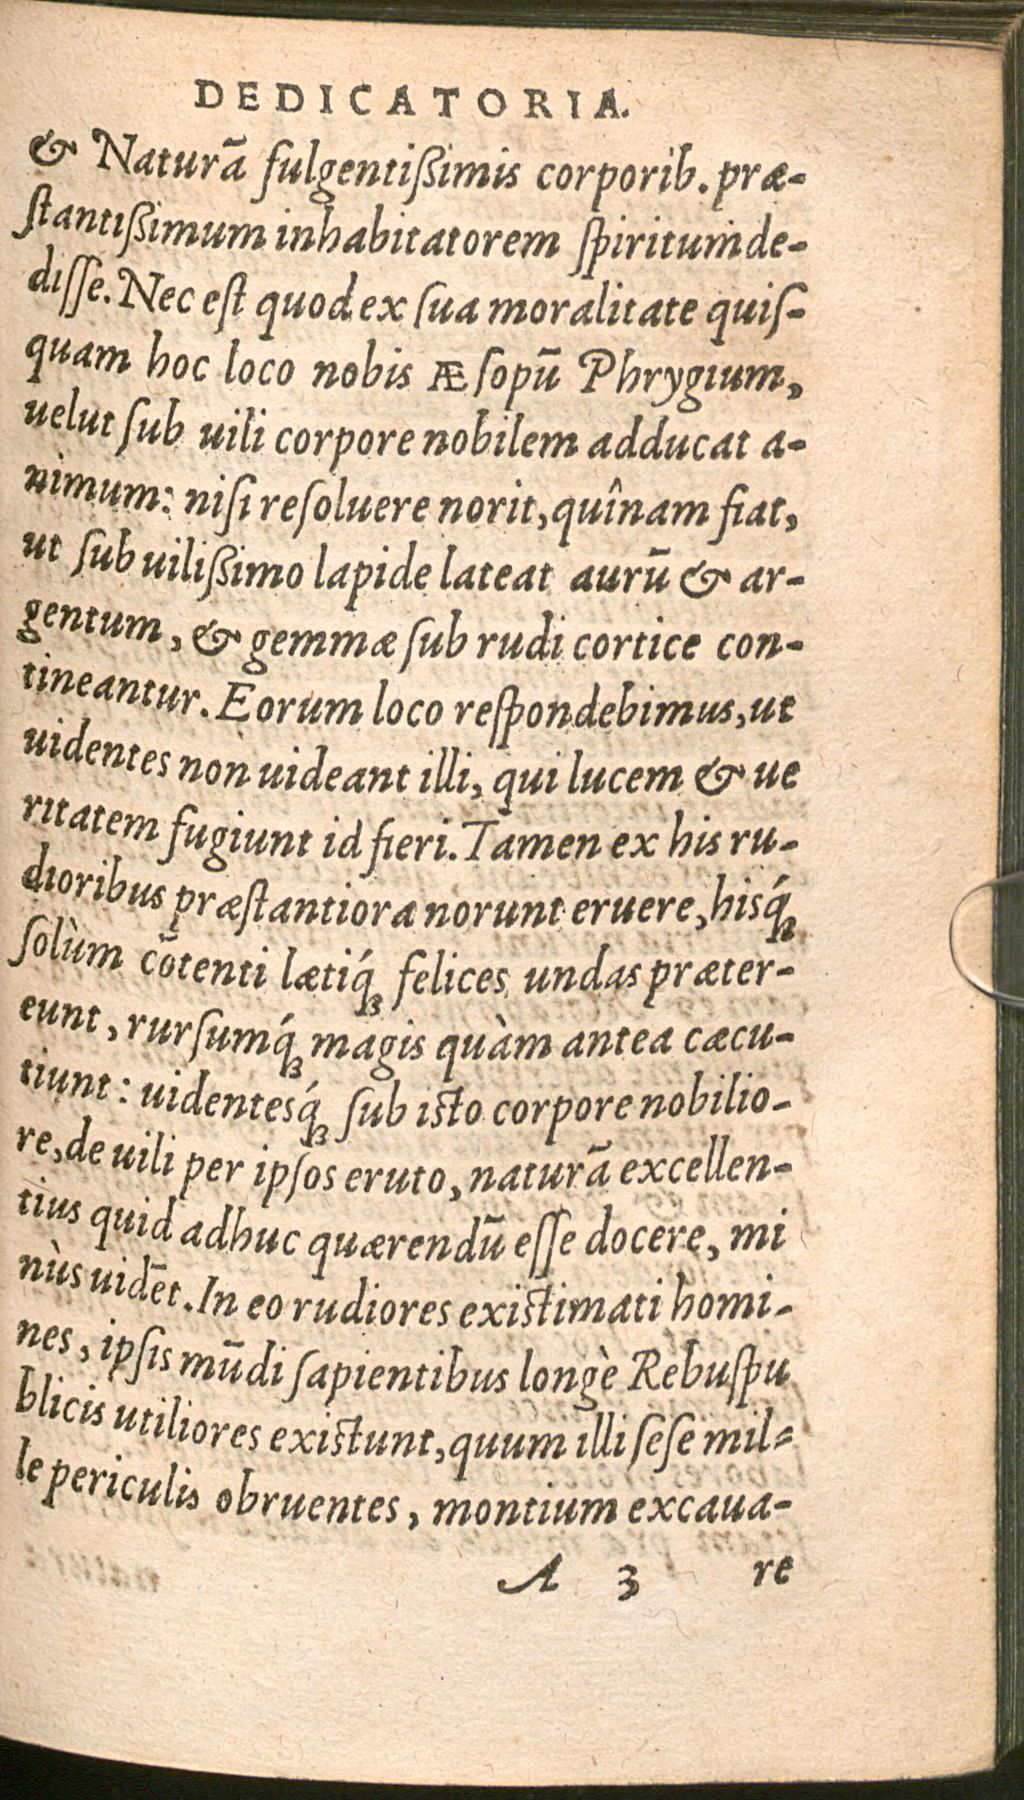 DEDICATORIA.
& Naturā fulgentißimis corporib. præ-
ſtantißimum inhabitatorem ſpiritum de-
diſſe. Nec eſt quod ex ſua moralitate quiſ-
quam hoc loco nobis Æſopū Phrygium,
uelut ſub uili corpore nobilem adducat a-
nimum: niſi reſoluere norit, quînam fiat,
ut ſub uilißimo lapide lateat aurū & ar-
gentum, & gemmæ ſub rudi cortice con-
tineantur. Eorum loco reſpondebimus, ut
uidentes non uideant illi, qui lucem & ue
ritatem fugiunt id fieri. Tamen ex his ru-
dioribus præſtantiora norunt eruere, hisq́ꝫ
ſolùm cōtenti lætiq́ꝫ felices undas præter-
eunt, rurſumq́ꝫ magis quàm antea cæcu-
tiunt: uidentesq́ꝫ ſub iſto corpore nobilio-
re, de uili per ipſos eruto, naturā excellen-
tius quid adhuc quærendū eſſe docere, mi
nùs uidēt. In eo rudiores exiſtimati homi-
nes, ipſis mūdi ſapientibus longè Rebuſpu
blicis utiliores exiſtunt, quum illi ſeſe mil-
le periculis obruentes, montium excaua-
A 3 re